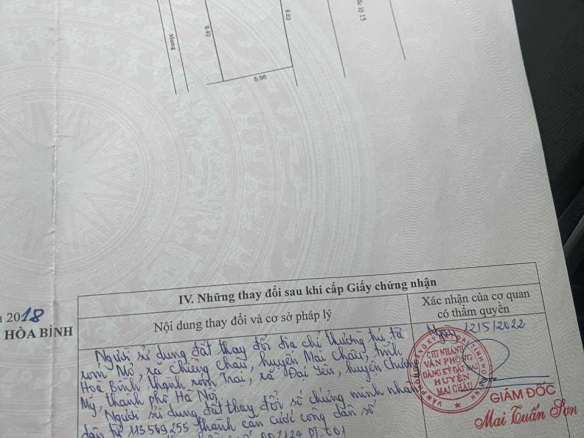 Mương
9.40
9.63
5.96
Quốc lộ 15
2018
HÒA BÌNH
IV. Những thay đổi sau khi cấp Giấy chứng nhận
Nội dung thay đổi và cơ sở pháp lý
Xác nhận của cơ quan
có thẩm quyền
Người sử dụng đất thay đổi địa chỉ thường trú từ
xóm Mỏ, xã Chiềng Châu, huyện Mai Châu, tỉnh
Hòa Bình thành xóm Trại, xã Đại Yên, huyện Chương
Mỹ, thành phố Hà Nội
Người sử dụng đất thay đổi số chứng minh nhân
dân từ 113569255 thành căn cước công dân số
Ngày 12/5/2022
CHI NHÁNH
VĂN PHÒNG
ĐĂNG KÝ ĐẤT ĐAI
HUYỆN
MAI CHÂU
GIÁM ĐỐC
Mai Tuấn Sơn